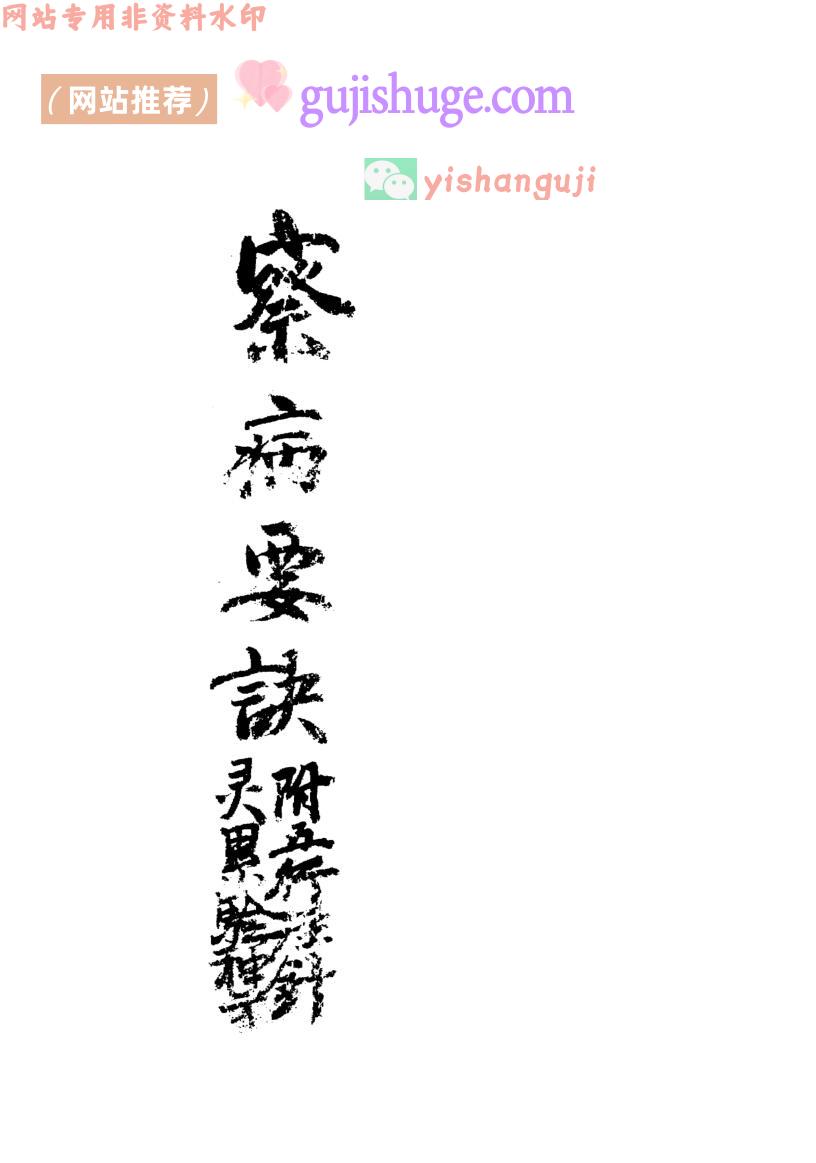 网站专用非资料水印
（网站推荐）
gujishuge.com
yishanguji
察病要訣
附五行 針
灵 驗神